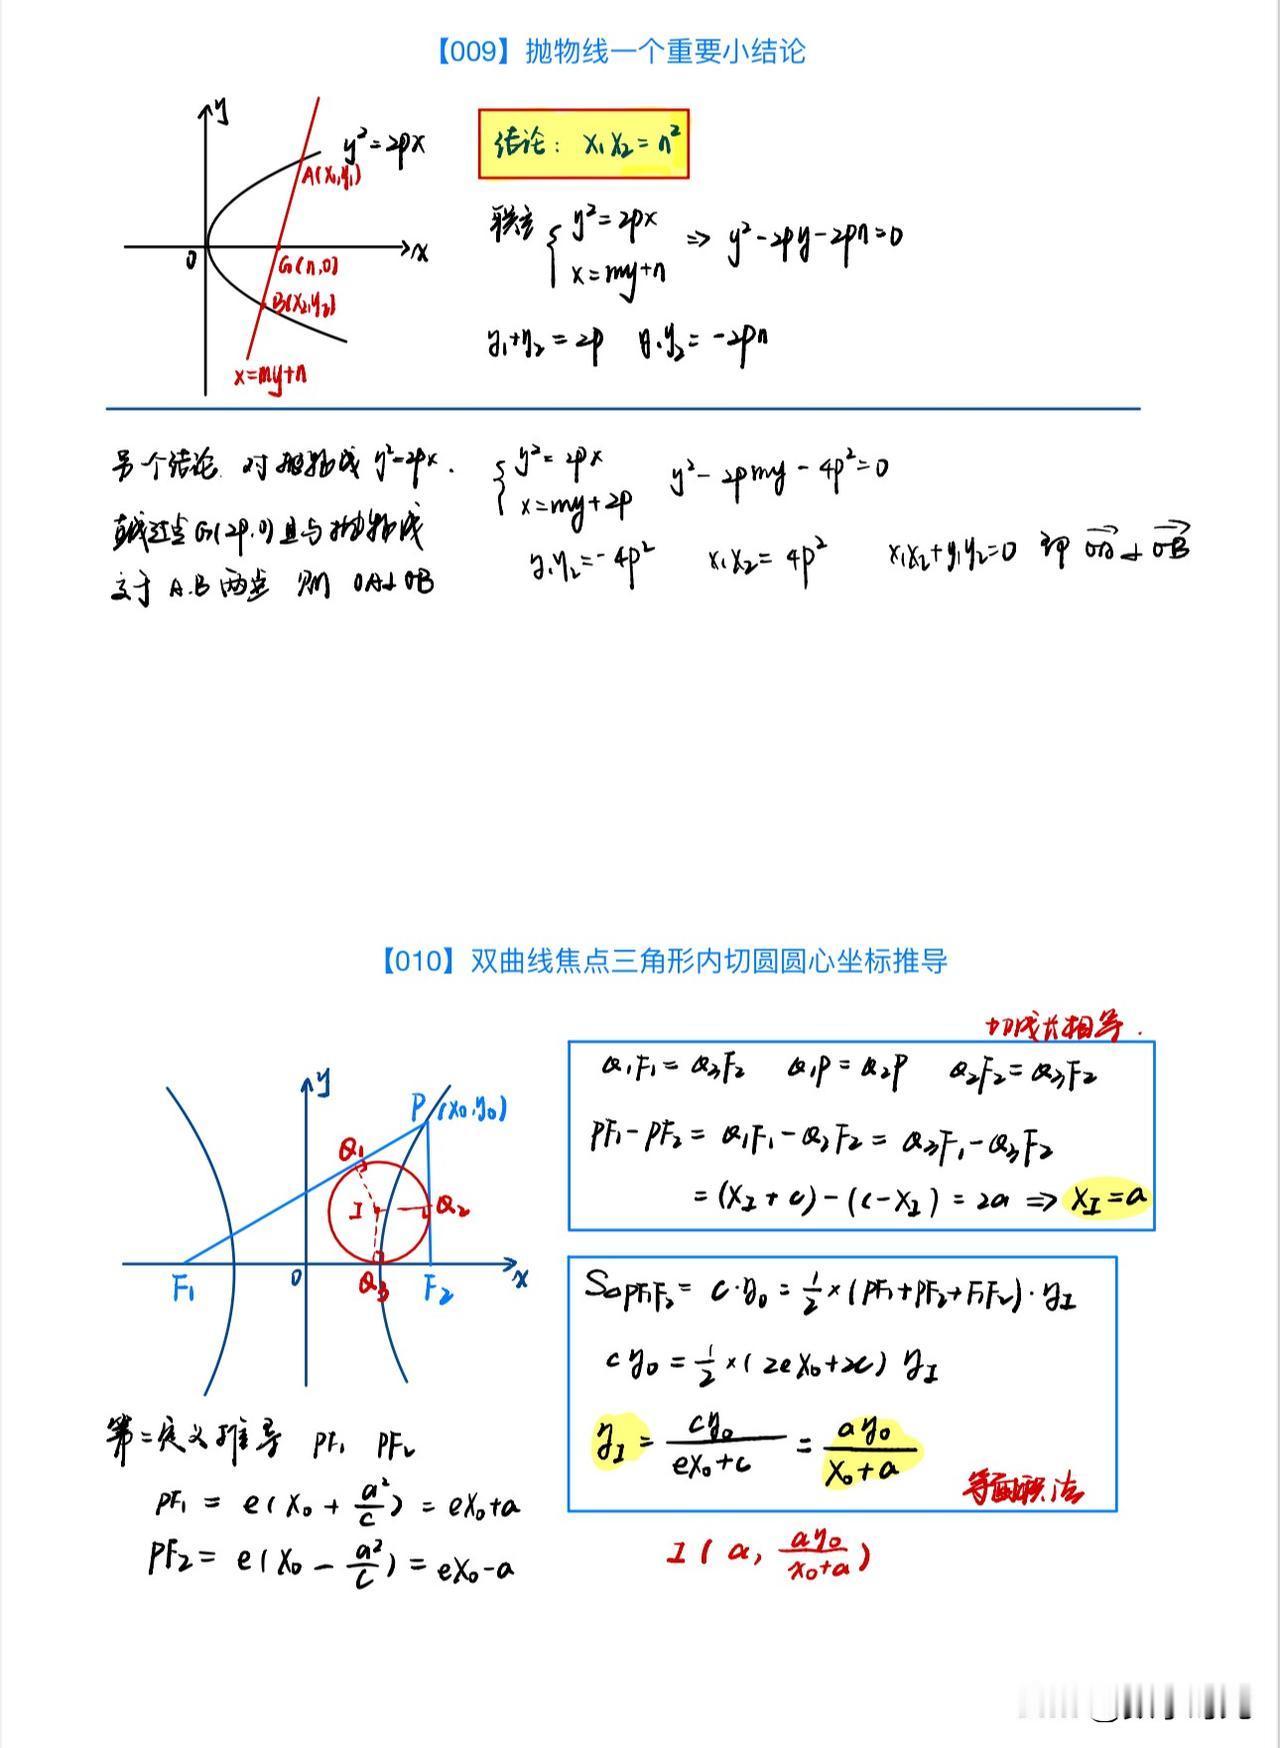 【009】抛物线一个重要小结论
y
y²=2px
A(x₁,y₁)
0
x
G(n,0)
B(x₂,y₂)
x=my+n
结论: x₁x₂=n²
联立 { y²=2px
x=my+n ⇒ y²-2py-2pn=0
y₁+y₂=2p y₁y₂=-2pn
另个结论. 对抛物线 y²=2px.
直线过点G(2p,0)且与抛物线
交于A.B两点 则 OA⊥OB
{ y²=2px
x=my+2p y²-2pmy-4p²=0
y₁y₂=-4p² x₁x₂=4p² x₁x₂+y₁y₂=0 即 OA⊥OB
【010】双曲线焦点三角形内切圆圆心坐标推导
y
P(x₀,y₀)
Q₁
I
Q₂
F₁
0
Q₃
F₂
x
切线长相等.
Q₁F₁=Q₃F₂ Q₁P=Q₂P Q₂F₂=Q₃F₂
PF₁-PF₂=Q₁F₁-Q₂F₂=Q₃F₁-Q₃F₂
=(x_I+c)-(c-x_I)=2a ⇒ x_I=a
S△PF₁F₂=c·y₀=½×(PF₁+PF₂+F₁F₂)·y_I
cy₀=½×(2ex₀+2c)y_I
y_I=cy₀/(ex₀+c)=ay₀/(x₀+a)
等面积法
第二定义推导 PF₁ PF₂
PF₁=e(x₀+a²/c)=ex₀+a
PF₂=e(x₀-a²/c)=ex₀-a
I(a, ay₀/(x₀+a))